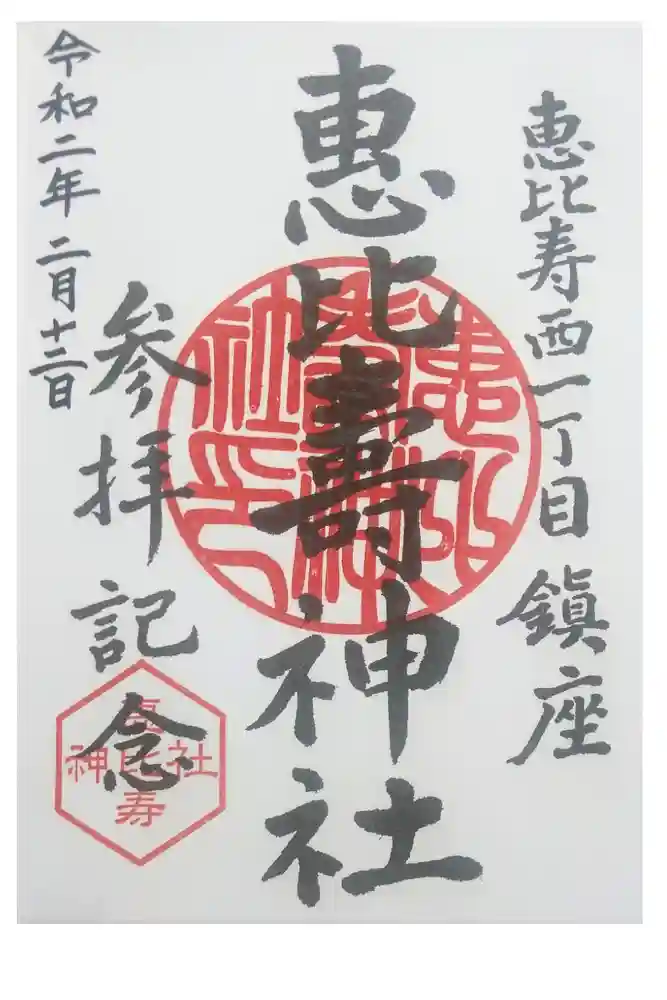 恵比寿西一丁目 鎮座
恵比壽神社
参拝記念
令和二年 二月十二日
恵比寿神社印
恵比寿
神社